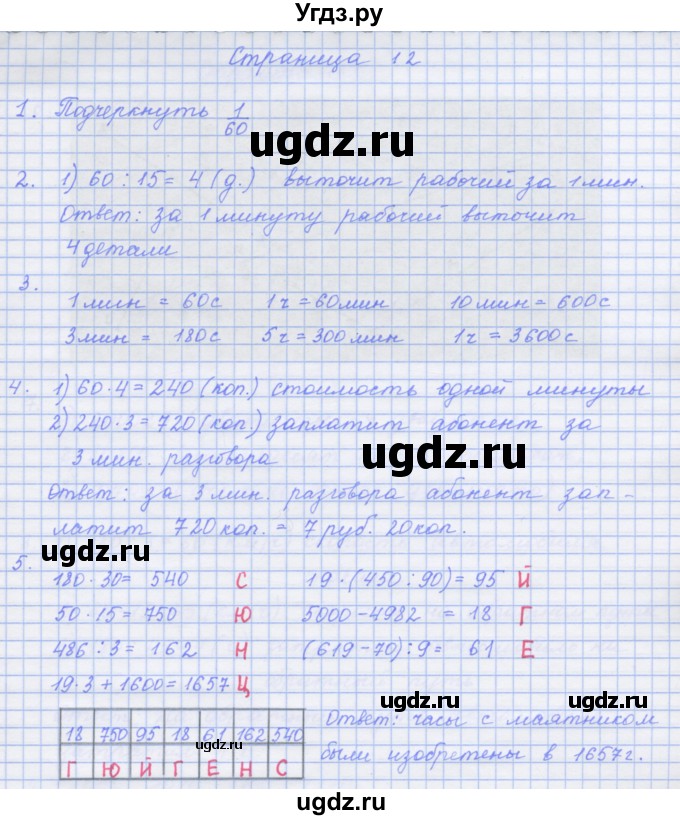 Угдз.ру
Страница 12
1. Подчеркнуть 1/60
ugdz.ru
2. 1) 60 : 15 = 4 (д.) выточит рабочий за 1 мин.
Ответ: за 1 минуту рабочий выточит
4 детали
3.
1 мин = 60 с 1 ч = 60 мин 10 мин = 600 с
3 мин = 180 с 5 ч = 300 мин 1 ч = 3600 с
4. 1) 60 · 4 = 240 (коп.) стоимость одной минуты
2) 240 · 3 = 720 (коп) заплатит абонент за
3 мин. разговора
ugdz.ru
Ответ: за 3 мин. разговора абонент зап-
латит 720 коп. = 7 руб. 20 коп.
ugdz.ru
5.
180 · 30 = 540 С 19 · (450 : 90) = 95 Й
50 · 15 = 750 Ю 5000 - 4982 = 18 Г
486 : 3 = 162 Н (619 - 70) : 9 = 61 Е
19 · 3 + 1600 = 1657 Ц
ugdz.ru
ugdz.ru
18 750 95 18 61 162 540
Г Ю Й Г Е Н С
ugdz.ru
Ответ: часы с маятником
были изобретены в 1657 г.
ugdz.ru